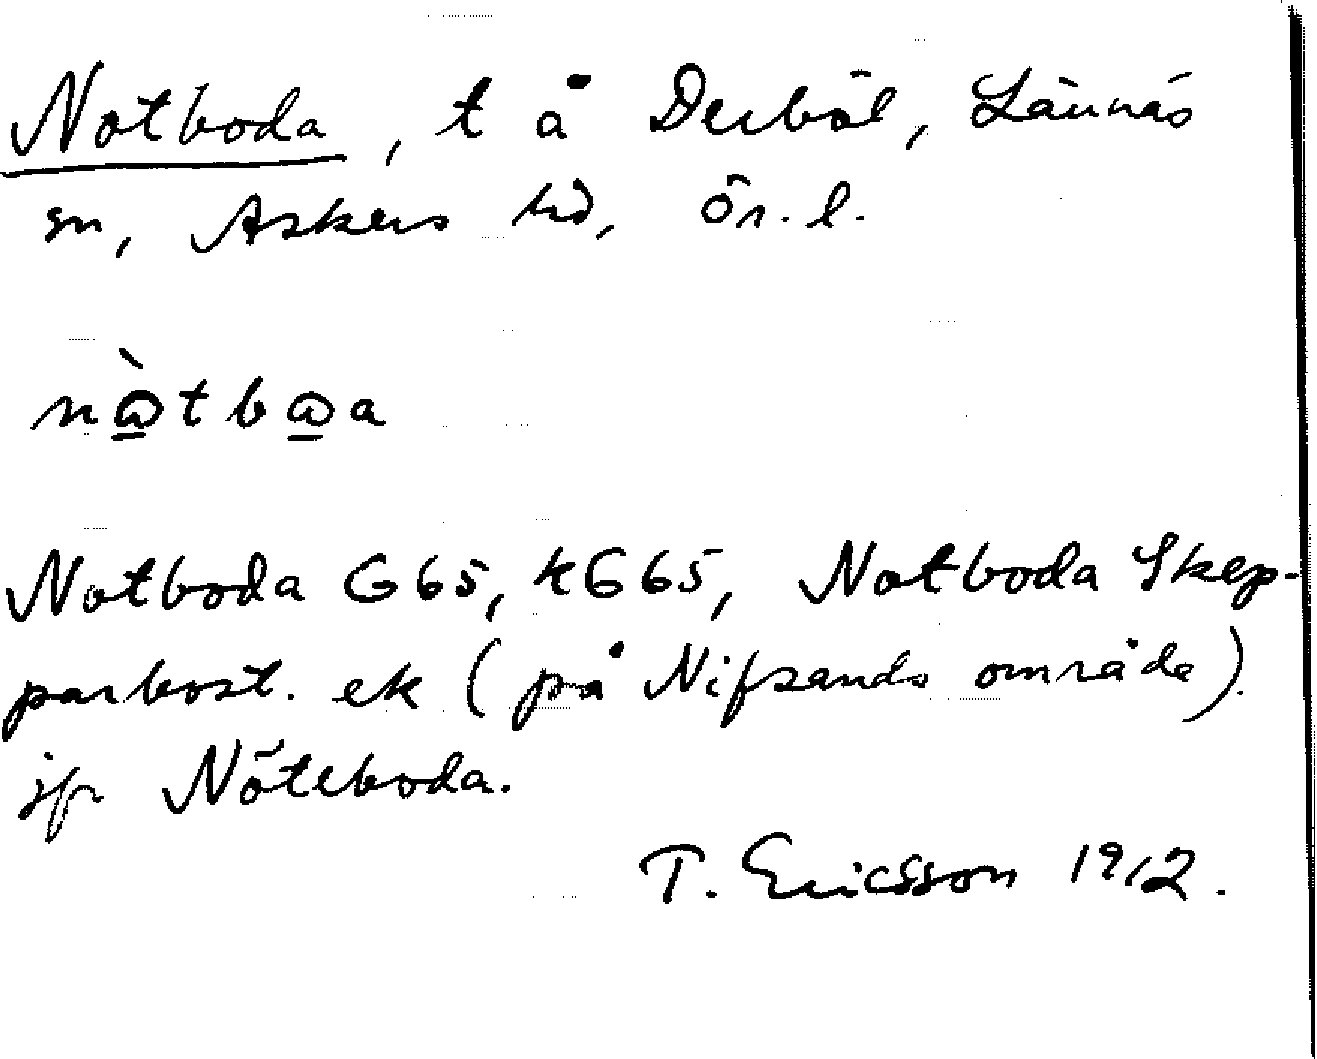 Notboda, t å Derböl, Lännäs
sn, Askers hd, Ör. l.
nὼtbωa
Notboda G65, kG65, Notboda Skep-
parbost. ek (på Nifsands område).
jfr Nöteboda.
T. Ericsson 1912.